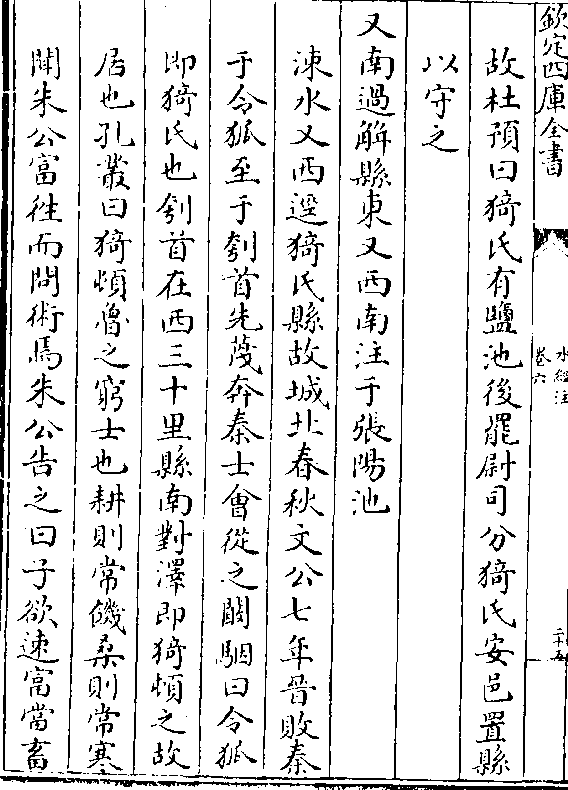 欽定四庫全書
水經注
卷六
二十五
故杜預曰猗氏有鹽池後罷尉司分猗氏安邑置縣
以守之
又南過解縣東又西南注于張陽池
涑水又西逕猗氏縣故城北春秋文公七年晉敗秦
于令狐至于刳首先蔑奔秦士會從之闞駰曰令狐
即猗氏也刳首在西三十里縣南對澤即猗頓之故
居也孔叢曰猗頓魯之窮士也耕則常饑桑則常寒
聞朱公富徃而問術焉朱公告之曰子欲速富當畜